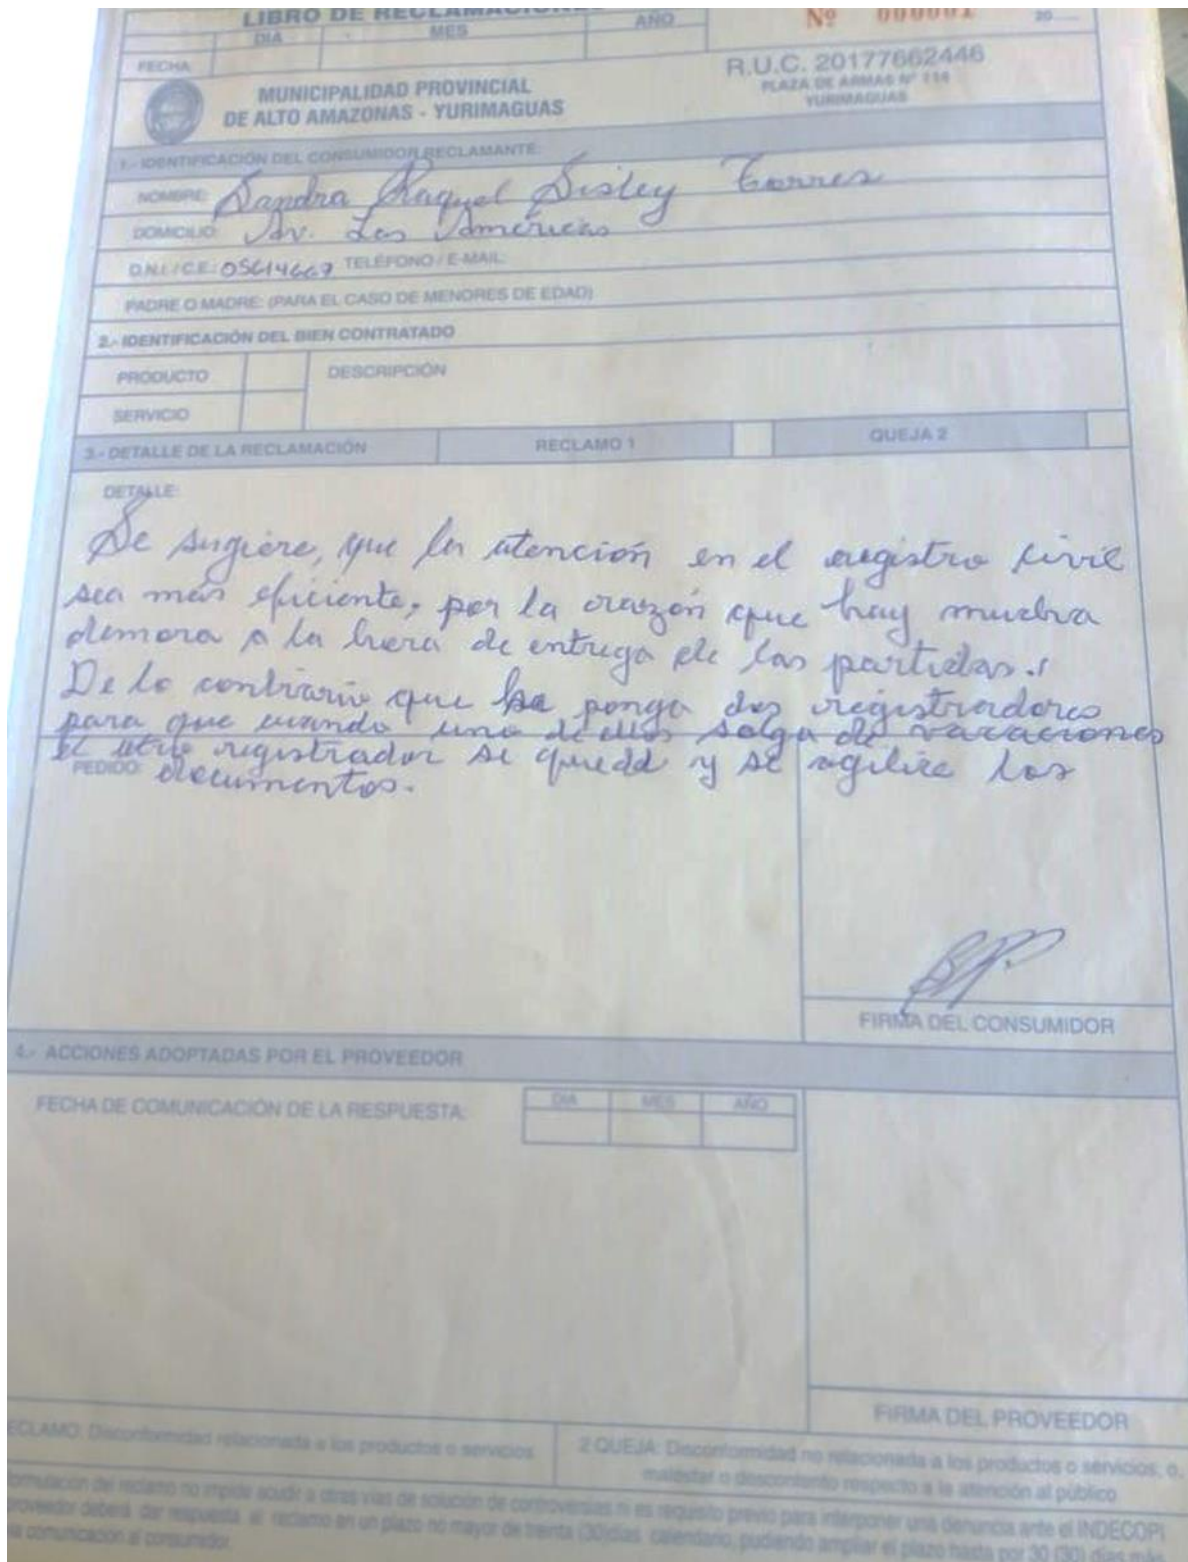 LIBRO DE RECLAMACIONES
DIA MES AÑO Nº 000001 20
FECHA
MUNICIPALIDAD PROVINCIAL
DE ALTO AMAZONAS - YURIMAGUAS
R.U.C. 20177662446
PLAZA DE ARMAS Nº 114
YURIMAGUAS
1.- IDENTIFICACIÓN DEL CONSUMIDOR RECLAMANTE:
NOMBRE: Sandra Raquel Sisley Torres
DOMICILIO: Av. Las Américas
D.N.I. / C.E.: 05614667 TELÉFONO / E-MAIL:
PADRE O MADRE: (PARA EL CASO DE MENORES DE EDAD)
2.- IDENTIFICACIÓN DEL BIEN CONTRATADO
PRODUCTO DESCRIPCIÓN
SERVICIO
3.- DETALLE DE LA RECLAMACIÓN RECLAMO 1 QUEJA 2
DETALLE:
Se sugiere, que la atención en el registro civil
sea más eficiente, por la razón que hay mucha
demora a la hora de entrega de las partidas.
De lo contrario que se ponga dos registradores
para que cuando uno de ellos salga de vacaciones
el otro registrador se quedd y se agilice los
PEDIDO: documentos.
FIRMA DEL CONSUMIDOR
4.- ACCIONES ADOPTADAS POR EL PROVEEDOR
FECHA DE COMUNICACIÓN DE LA RESPUESTA: DIA MES AÑO
FIRMA DEL PROVEEDOR
ECLAMO: Disconformidad relacionada a los productos o servicios
2 QUEJA: Disconformidad no relacionada a los productos o servicios; o,
malestar o descontento respecto a la atención al público
ormulación del reclamo no impide acudir a otras vías de solución de controversias ni es requisito previo para interponer una denuncia ante el INDECOPI
roveedor deberá dar respuesta al reclamo en un plazo no mayor de treinta (30) días calendario, pudiendo ampliar el plazo hasta por 30 (30) días más
a comunicación al consumidor.